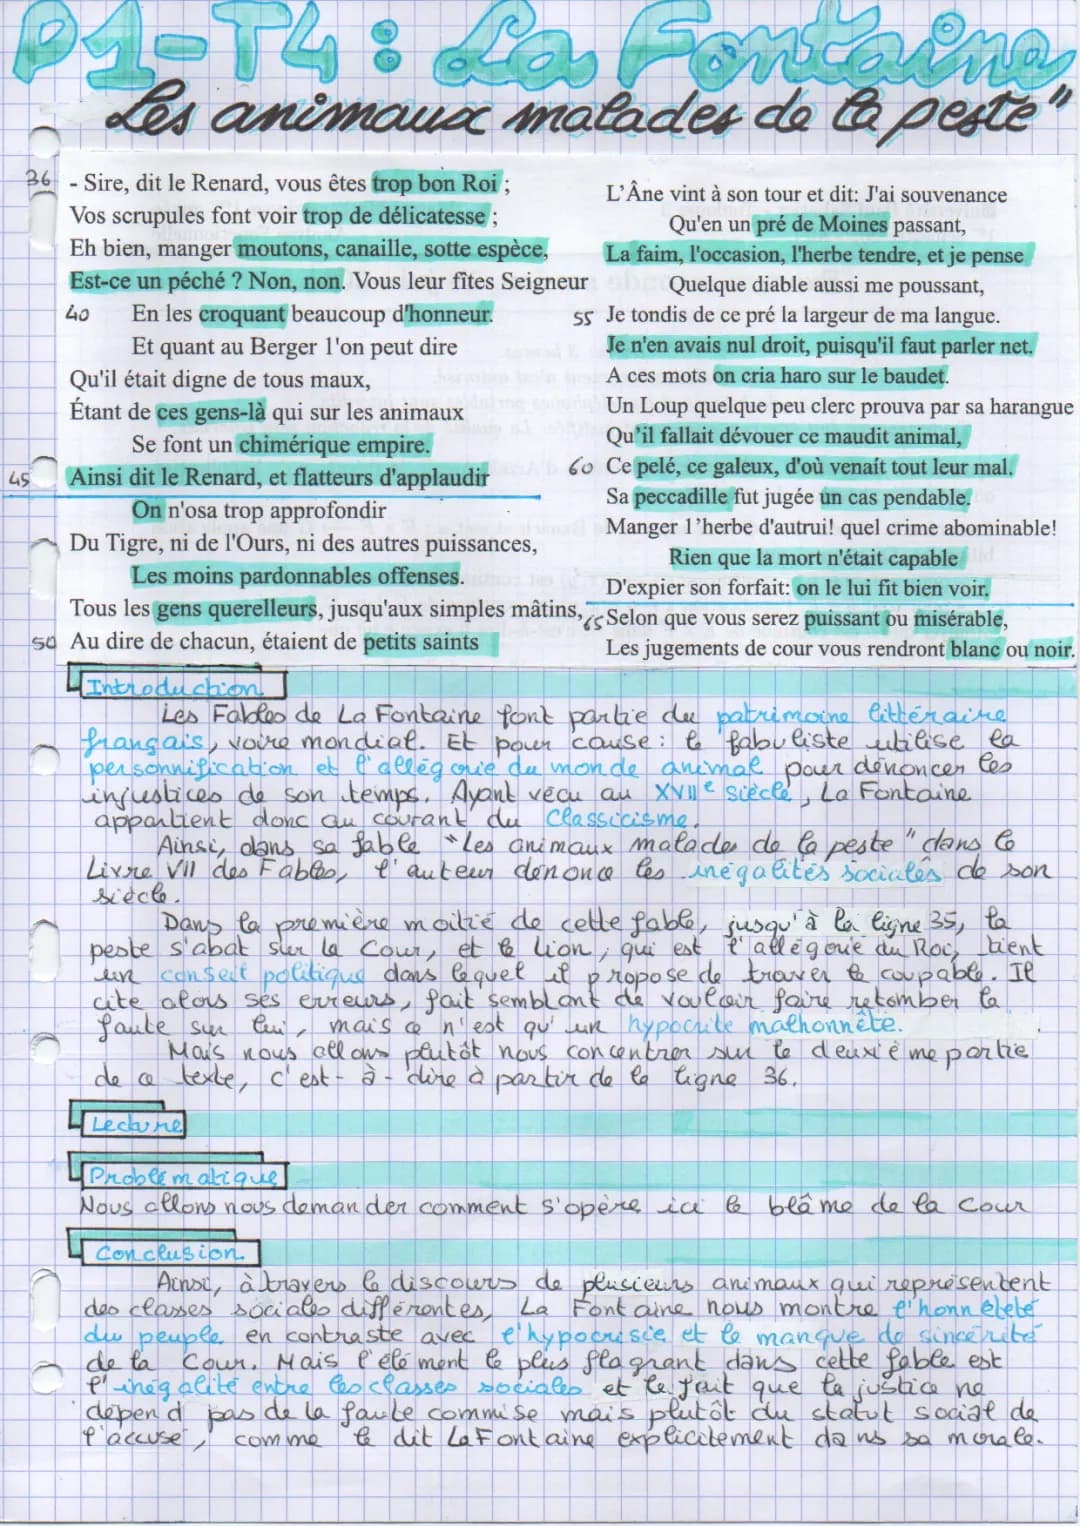 P1-T4 : La Fontaine
"Les animaux malades de la peste"
36 - Sire, dit le Renard, vous êtes trop bon Roi ;
Vos scrupules font voir trop de délicatesse ;
Eh bien, manger moutons, canaille, sotte espèce,
Est-ce un péché ? Non, non. Vous leur fîtes Seigneur
40 En les croquant beaucoup d'honneur.
Et quant au Berger l'on peut dire
Qu'il était digne de tous maux,
Étant de ces gens-là qui sur les animaux
Se font un chimérique empire.
45 Ainsi dit le Renard, et flatteurs d'applaudir
On n'osa trop approfondir
Du Tigre, ni de l'Ours, ni des autres puissances,
Les moins pardonnables offenses.
Tous les gens querelleurs, jusqu'aux simples mâtins,
50 Au dire de chacun, étaient de petits saints
L'Âne vint à son tour et dit: J'ai souvenance
Qu'en un pré de Moines passant,
La faim, l'occasion, l'herbe tendre, et je pense
Quelque diable aussi me poussant,
55 Je tondis de ce pré la largeur de ma langue.
Je n'en avais nul droit, puisqu'il faut parler net.
A ces mots on cria haro sur le baudet.
Un Loup quelque peu clerc prouva par sa harangue
Qu'il fallait dévouer ce maudit animal,
60 Ce pelé, ce galeux, d'où venait tout leur mal.
Sa peccadille fut jugée un cas pendable.
Manger l'herbe d'autrui! quel crime abominable!
Rien que la mort n'était capable
D'expier son forfait: on le lui fit bien voir.
65 Selon que vous serez puissant ou misérable,
Les jugements de cour vous rendront blanc ou noir.
Introduction
Les Fables de La Fontaine font partie du patrimoine littéraire
français, voire mondial. Et pour cause : le fabuliste utilise la
personnification et l'allégorie du monde animal pour dénoncer les
injustices de son temps. Ayant vécu au XVIIe siècle, La Fontaine
appartient donc au courant du Classicisme.
Ainsi, dans sa fable "Les animaux malades de la peste" dans le
Livre VII des Fables, l'auteur dénonce les inégalités sociales de son
siècle.
Dans la première moitié de cette fable, jusqu'à la ligne 35, la
peste s'abat sur la Cour, et le Lion, qui est l'allégorie du Roi, tient
un conseil politique dans lequel il propose de trouver le coupable. Il
cite alors ses erreurs, fait semblant de vouloir faire retomber la
faute sur lui, mais ce n'est qu'un hypocrite malhonnête.
Mais nous allons plutôt nous concentrer sur la deuxième partie
de ce texte, c'est-à-dire à partir de la ligne 36.
Lecture
Problématique
Nous allons nous demander comment s'opère ici le blâme de la Cour
Conclusion
Ainsi, à travers le discours de plusieurs animaux qui représentent
des classes sociales différentes, La Fontaine nous montre l'honnêteté
du peuple en contraste avec l'hypocrisie et le manque de sincérité
de la Cour. Mais l'élément le plus flagrant dans cette fable est
l'inégalité entre les classes sociales et le fait que la justice ne
dépend pas de la faute commise mais plutôt du statut social de
l'accusé, comme le dit La Fontaine explicitement dans sa morale.